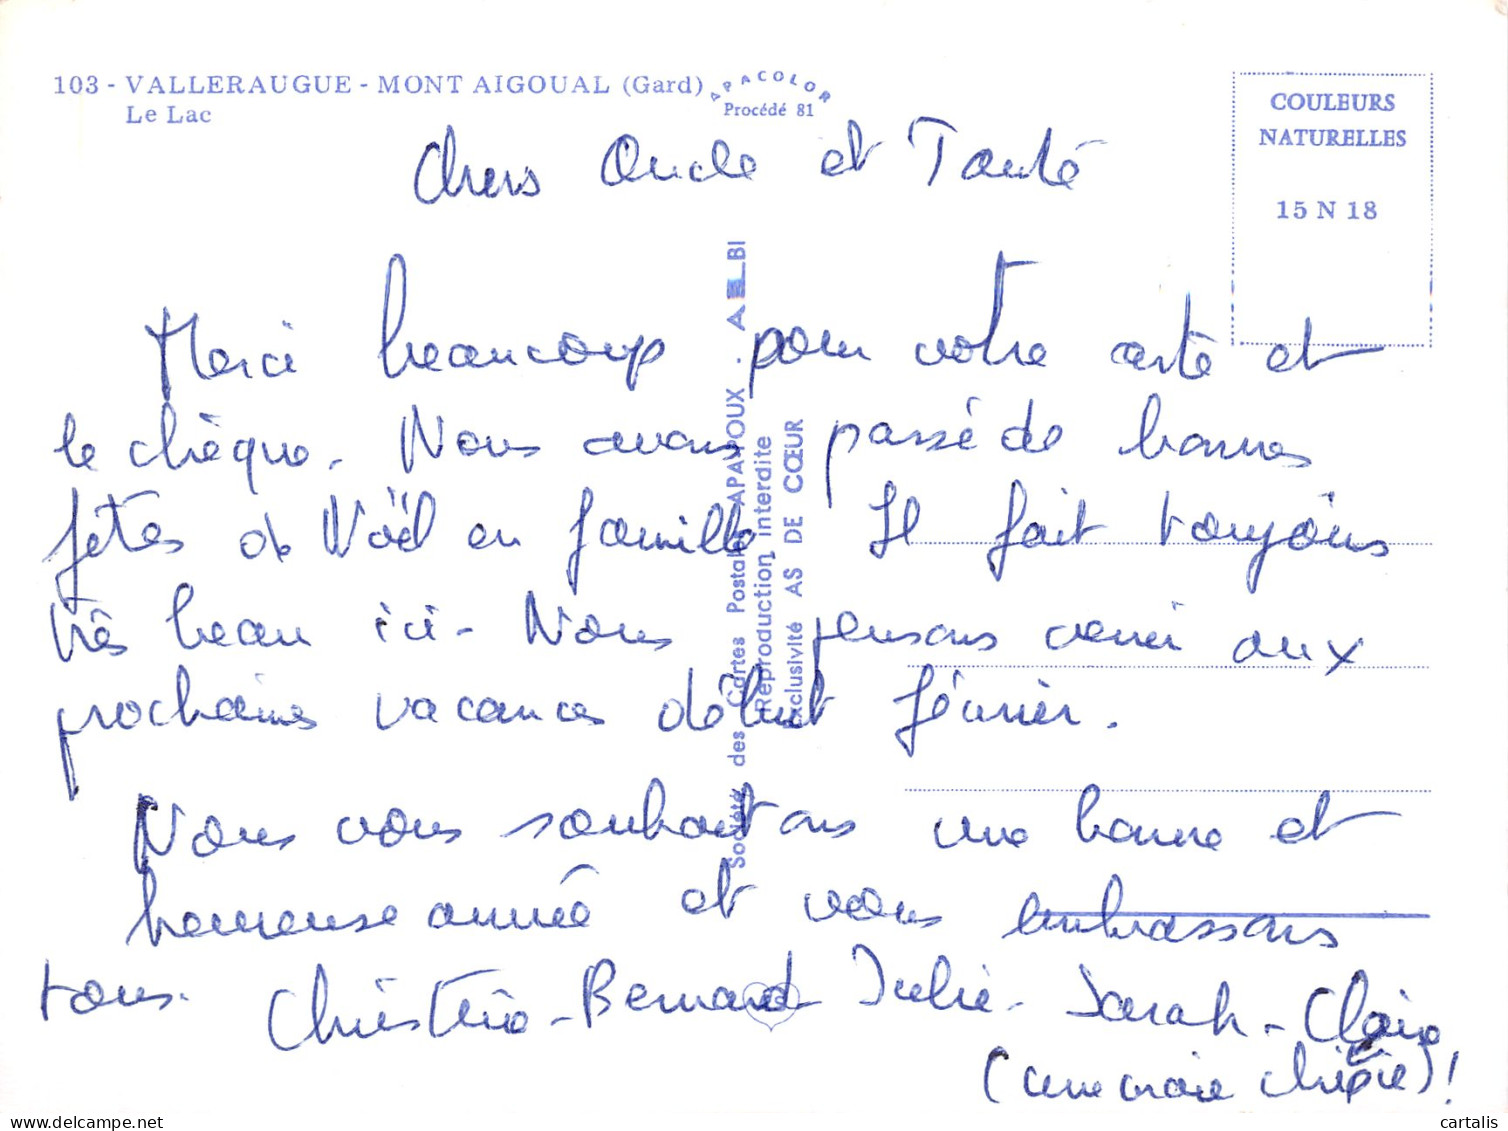 103 - VALLERAUGUE - MONT AIGOUAL (Gard)
Le Lac
APACOLOR
Procédé 81
COULEURS
NATURELLES
15 N 18
Chers Oncle et Tante
Merci beaucoup pour votre carte et
le chèque. Nous avons passé de bonnes
fêtes de Noël en famille Il fait toujours
très beau ici - Nous pensons venir aux
prochaines vacances début février.
Nous vous souhaitons une bonne et
heureuse année et vous embrassons
tous. Christine - Bernard Julie - Sarah - Claire
(une vraie chipie)!
Société des Cartes Postales APAPOUX . ALBI
Reproduction interdite
Exclusivité AS DE CŒUR
delcampe.net
cartalis